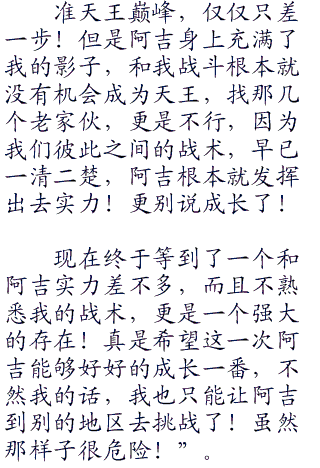 准天王巅峰，仅仅只差
一步！但是阿吉身上充满了
我的影子，和我战斗根本就
没有机会成为天王，找那几
个老家伙，更是不行，因为
我们彼此之间的战术，早已
一清二楚，阿吉根本就发挥
出去实力！更别说成长了！
现在终于等到了一个和
阿吉实力差不多，而且不熟
悉我的战术，更是一个强大
的存在！真是希望这一次阿
吉能够好好的成长一番，不
然我的话，我也只能让阿吉
到别的地区去挑战了！虽然
那样子很危险！”。